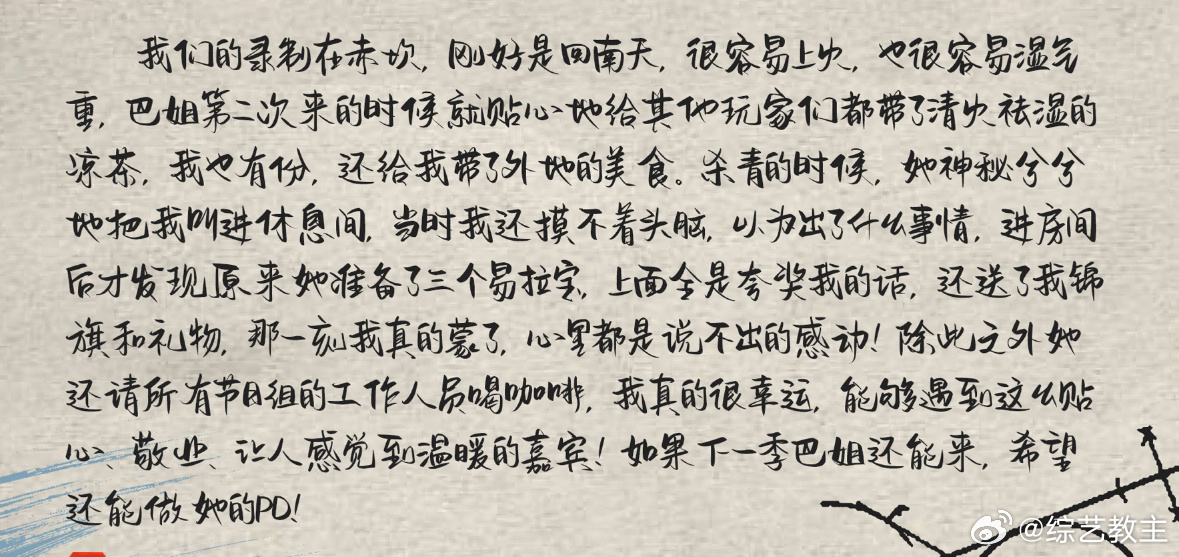 我们的录制在赤坎，刚好是回南天，很容易上火，也很容易湿气
重，巴姐第二次来的时候就贴心地给其他玩家们都带了清火祛湿的
凉茶，我也有份，还给我带了外地的美食。杀青的时候，她神秘兮兮
地把我叫进休息间，当时我还摸不着头脑，以为出了什么事情，进房间
后才发现原来她准备了三个易拉宝，上面全是夸奖我的话，还送了我锦
旗和礼物，那一刻我真的蒙了，心里都是说不出的感动！除此之外她
还请所有节目组的工作人员喝咖啡，我真的很幸运，能够遇到这么贴
心、敬业、让人感觉到温暖的嘉宾！如果下一季巴姐还能来，希望
还能做她的PD！
@综艺教主